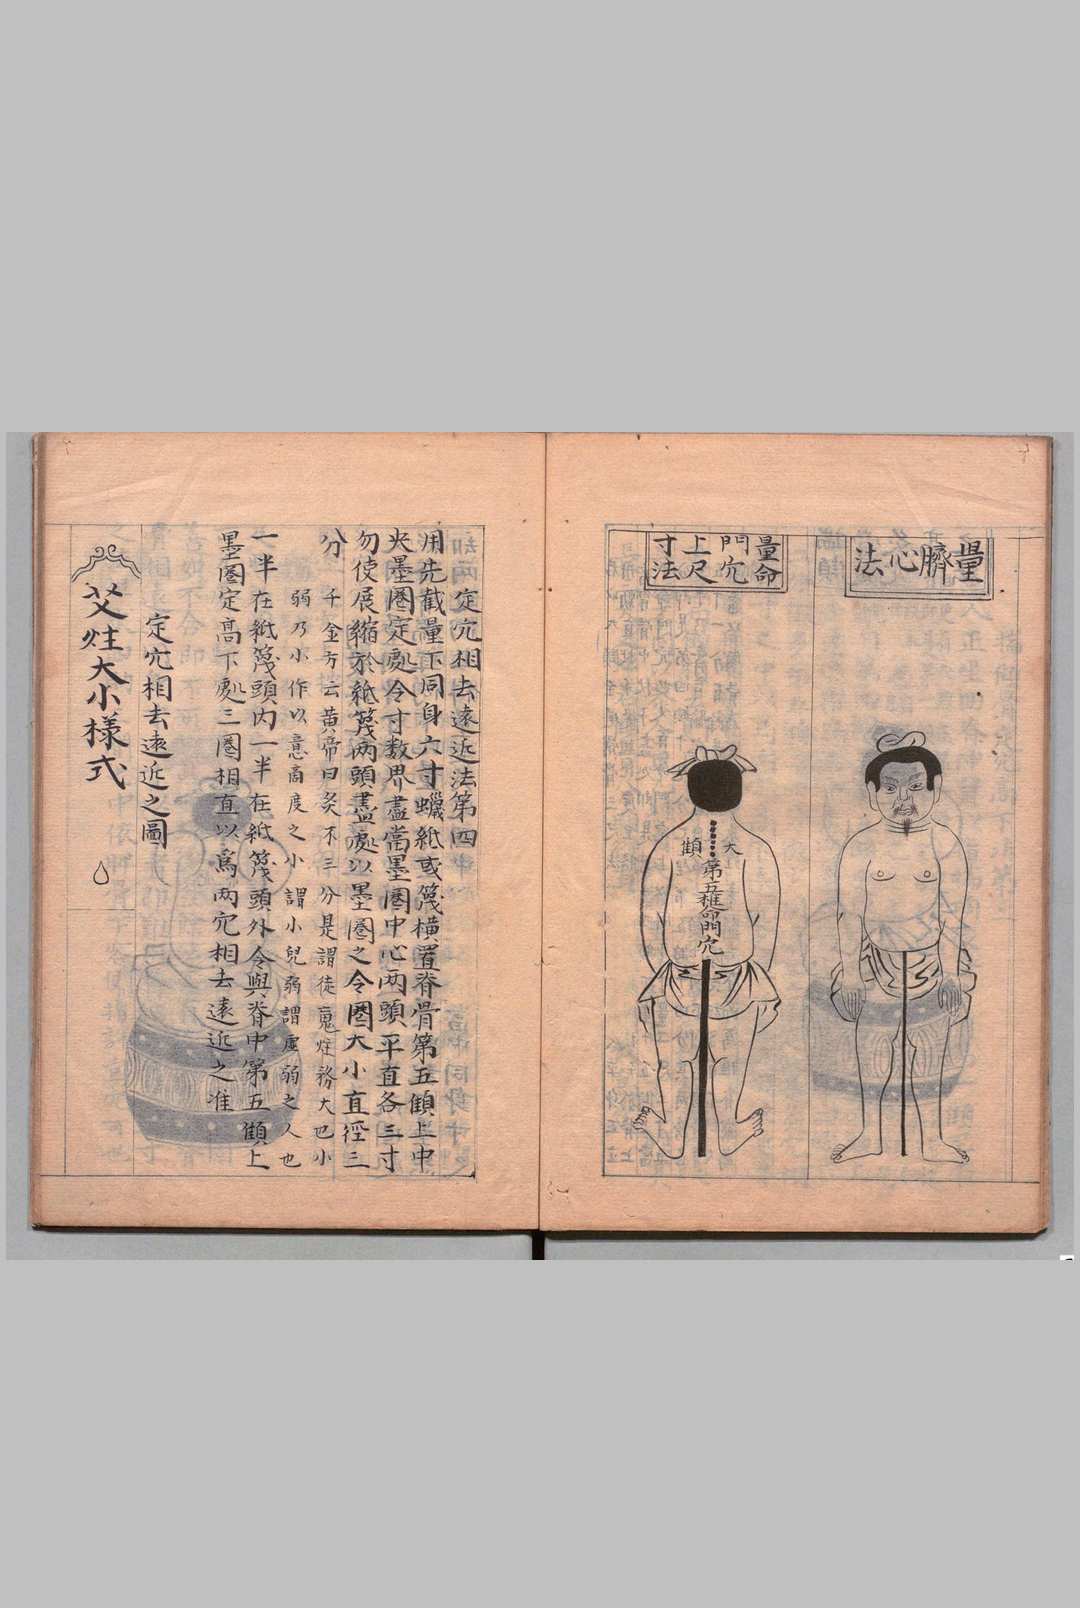 量臍心法
量命
門穴
上尺
寸法
大顀
第五椎命門穴
定穴相去遠近法第四
用先截量下同身六寸蠟紙或篾橫置脊骨第五顀上中
夾墨圈定處令寸数界盡當墨圈中心两頭平直各三寸
勿使展縮於紙篾两頭盡處以墨圈之令圈大小直徑三
分 千金方云黄帝曰灸不三分是謂徒冤炷務大也小
弱乃小作以意商度之小謂小兒弱謂虛弱之人也
一半在紙篾頭内一半在紙篾頭外令與脊中第五顀上
墨圈定高下處三圈相直以爲两穴相去遠近之准
定穴相去遠近之圖
艾炷大小樣式